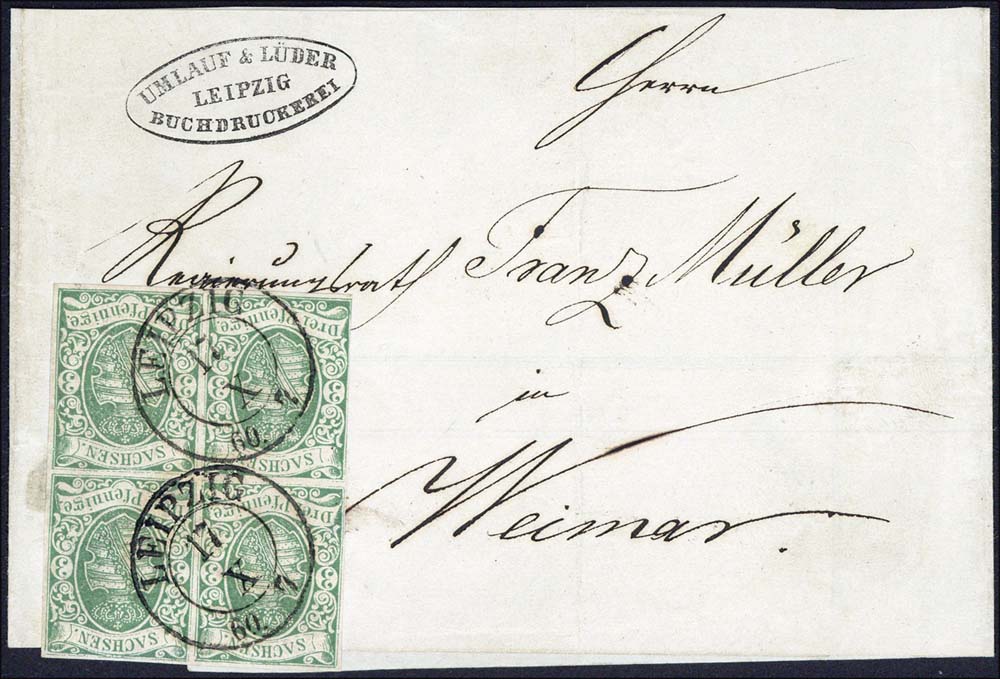 UMLAUF & LÜDER
LEIPZIG
BUCHDRUCKEREI
Herrn
Regierungsrath Franz Müller
in
Weimar.
Drei Pfennige.
SACHSEN.
Drei Pfennige.
SACHSEN.
LEIPZIG
17
X
60.
Drei Pfennige.
SACHSEN.
Drei Pfennige.
SACHSEN.
LEIPZIG
17
X
60.